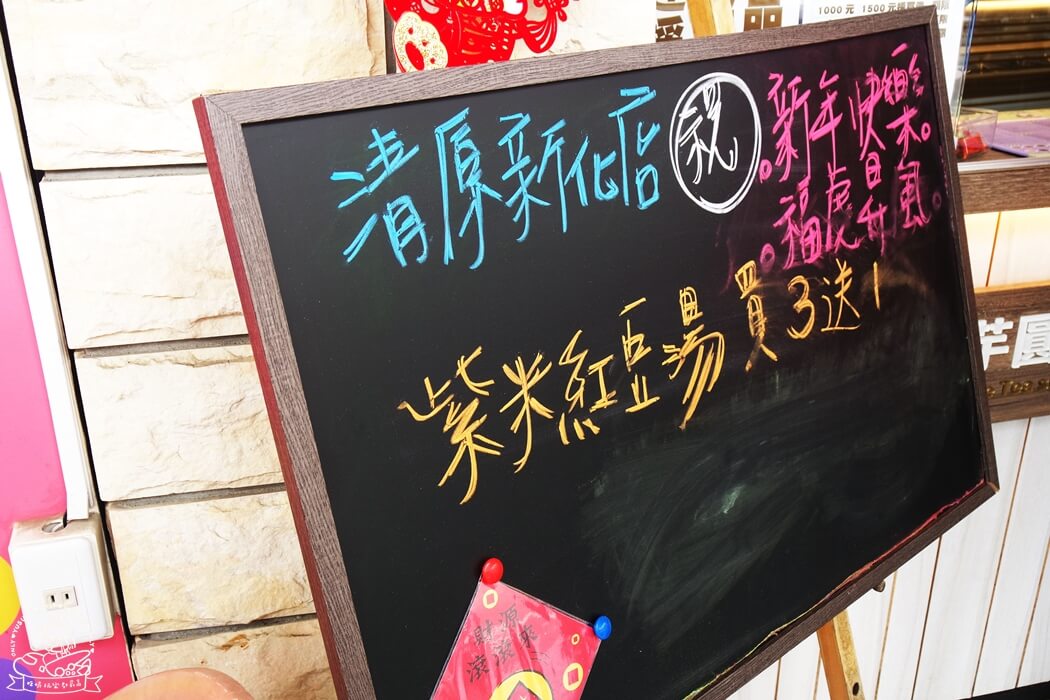 1000元 1500元
清原新化店 祝 新年快樂。
福虎昇風。
紫米紅豆湯 買3送1
芋圓
財源滾滾來